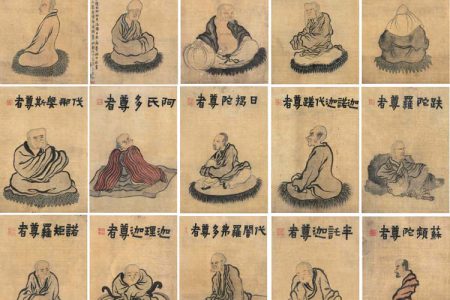 伐那婆斯尊者
阿氏多尊者
日揭陀尊者
迦諾迦伐蹉尊者
跋陀羅尊者
諾矩羅尊者
迦理迦尊者
伐闍羅弗多尊者
半託迦尊者
蘇頻陀尊者